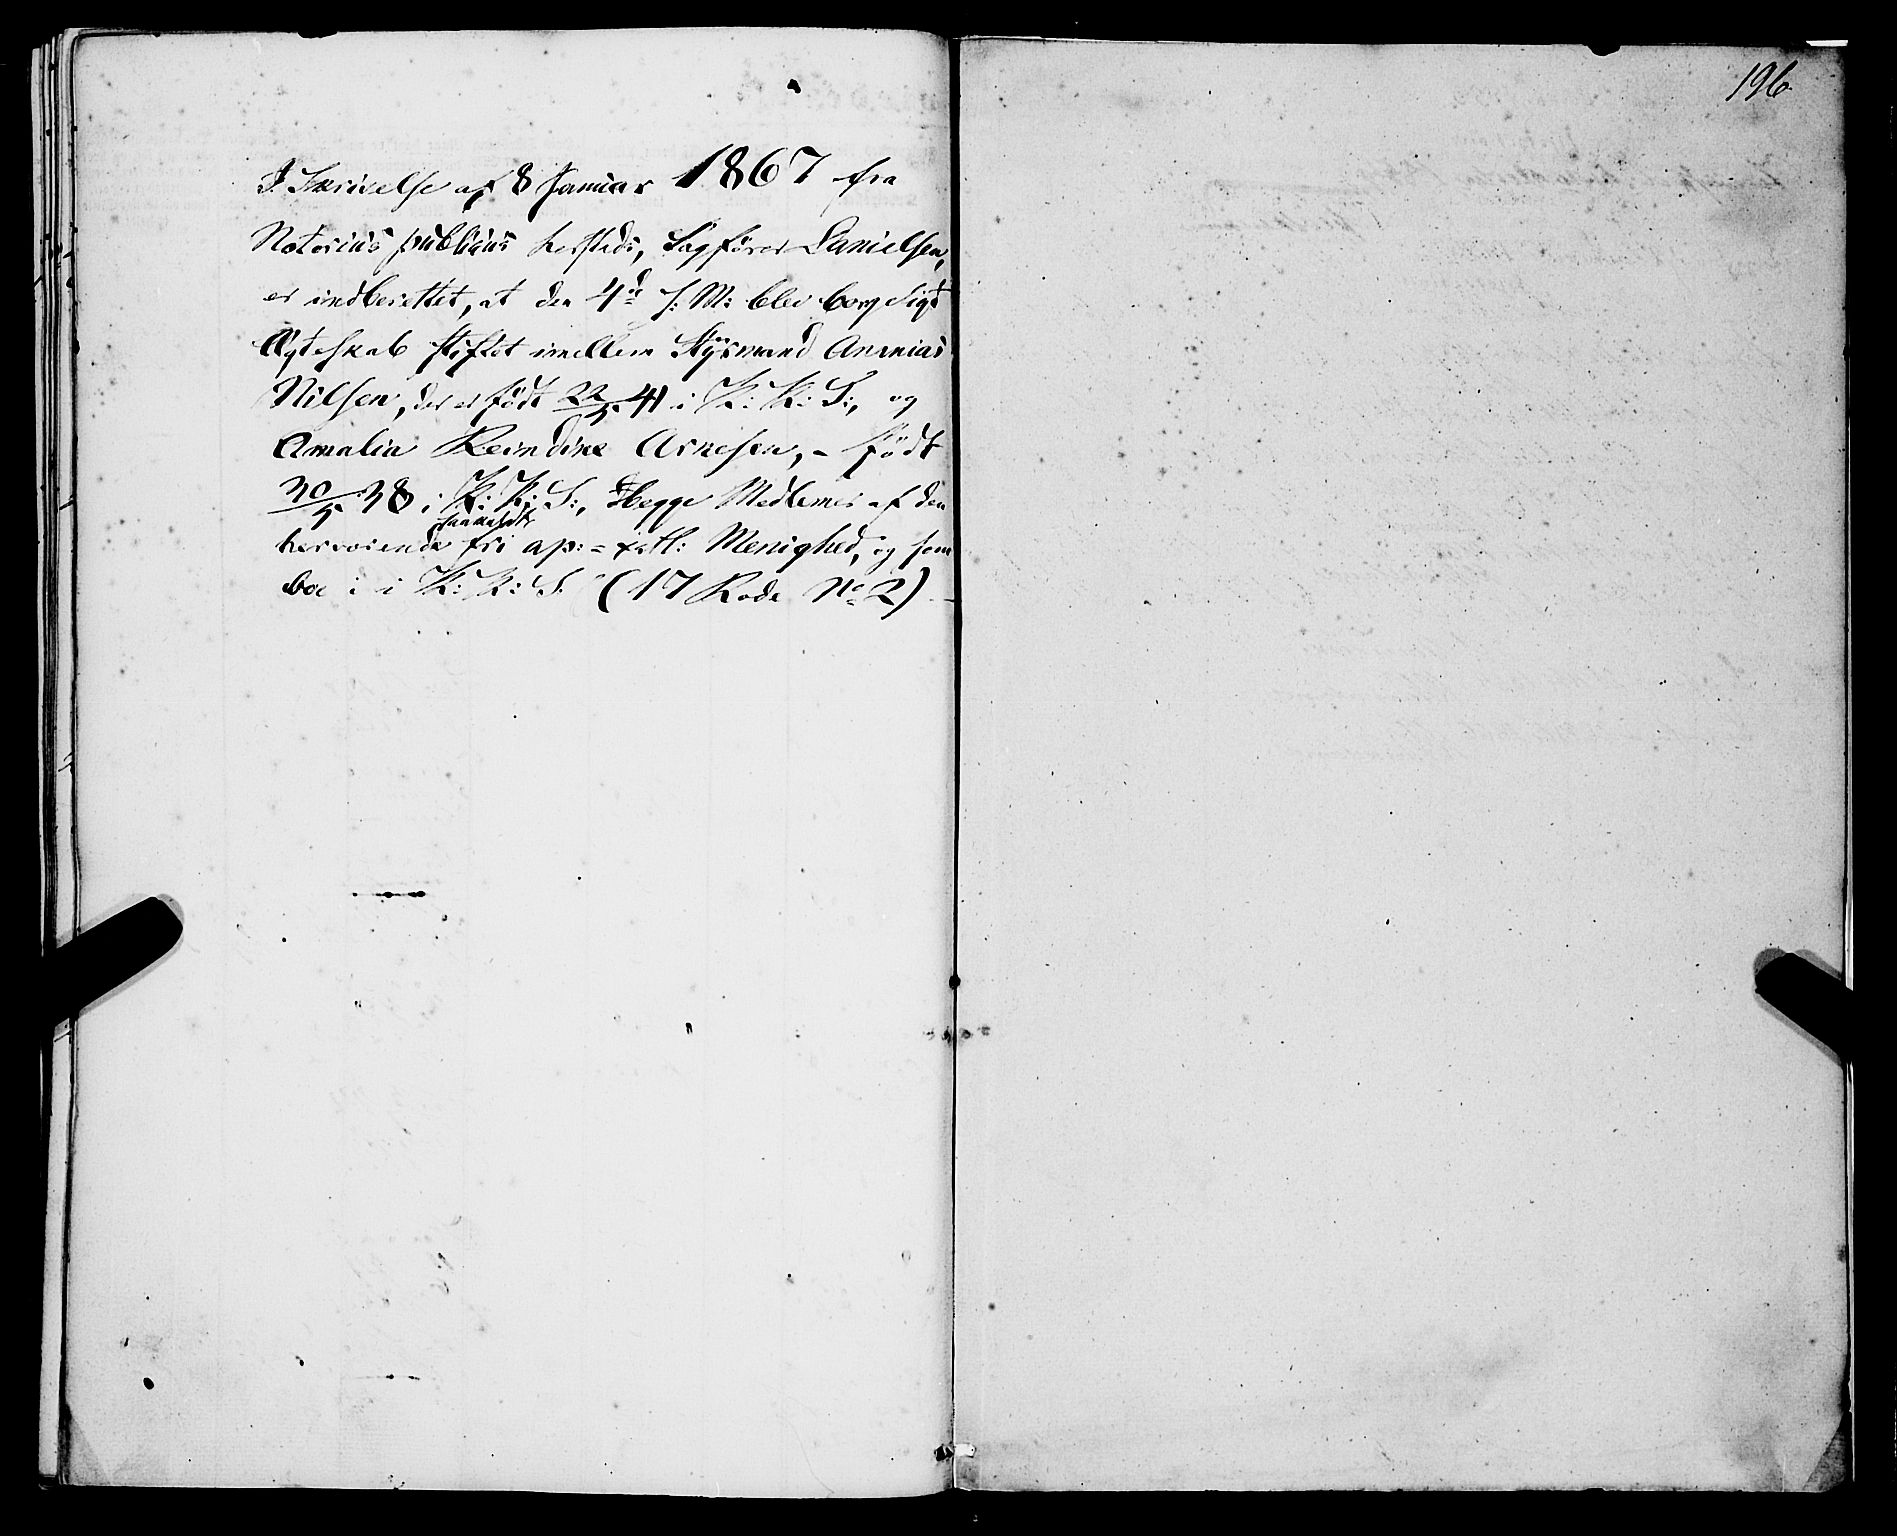 I Skrivelse af 8 Januar 1867 fra
Notarius publicus hersteds, Sagfører Danielsen,
er indberettet, at den 4de f: M: blev borgerligt
Ægteskab stiftet imellem Styrmand Ananias
Nilsen, der er født 22/5 41 i K: K: S:, og
Amalia Reindine Arnesen, - født
30/5 38 i K: K: S:, Begge Medlemer af den
herværende saakaldte fri ap: = xstl: Menighed, og som
boe i K: K: S: (17 Rode No 2) -
196